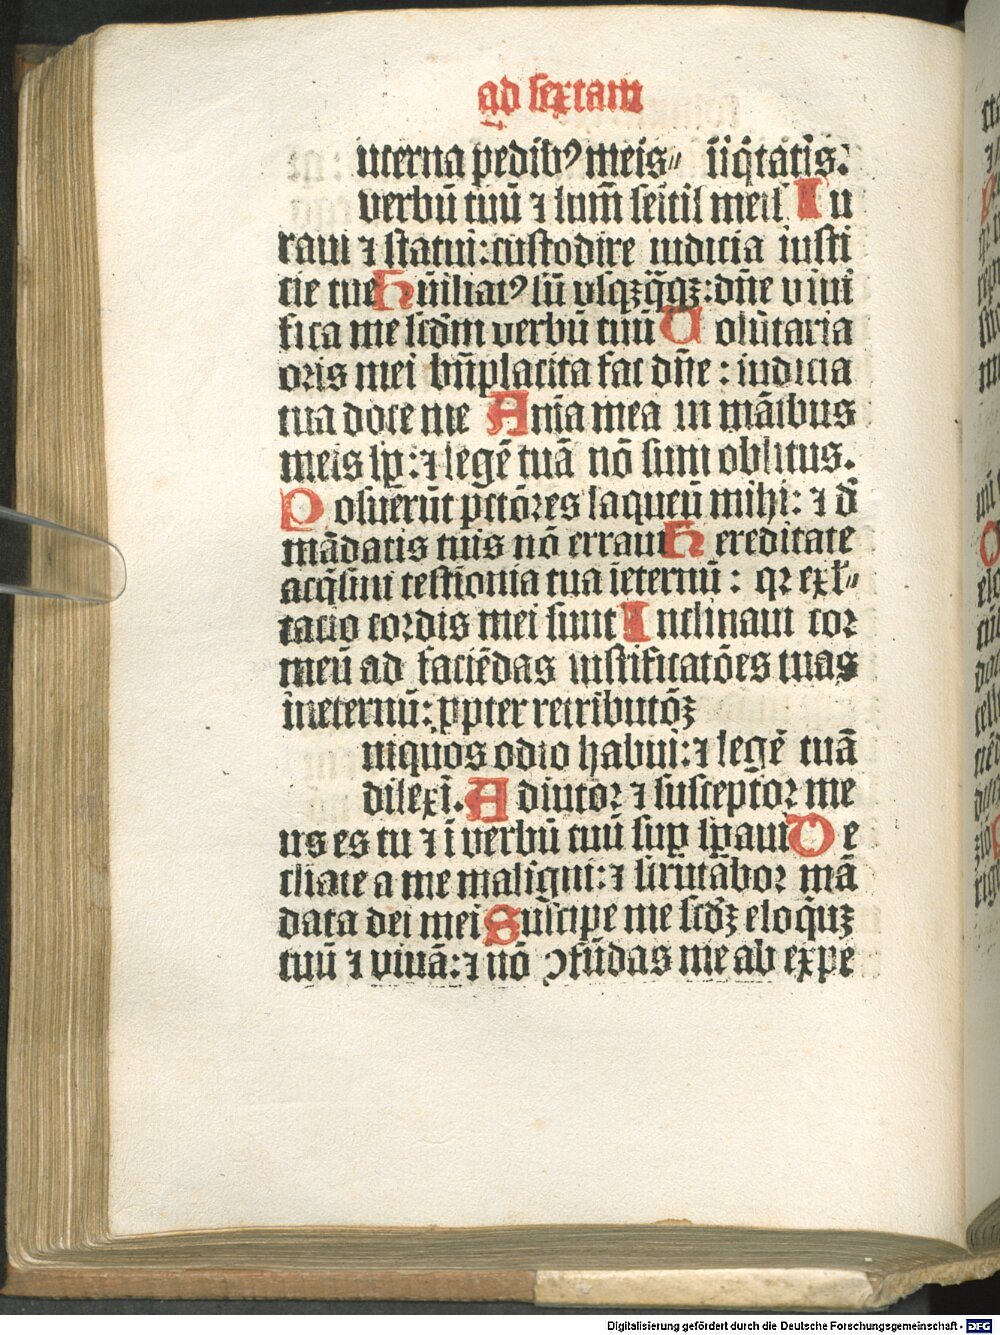 ad sextam
ucerna pedibꝰ meis〃 iiq̃tatis:
verbū tuū ⁊ lum̄ sēitis meis I u
raui ⁊ statui: custodire iudicia iusti
cie tue H ūiliatꝰ sū vsqꝫq̄qꝫ: dn̄e viui
fica me scd̄m verbū tuū V olūtaria
oris mei bn̄placita fac dn̄e : iudicia
tua doce me A nīa mea in māibus
meis sꝑ: ⁊ legē tuā nō sum oblitus.
P osuerūt pctōꝛes laqueū mihi: ⁊ d̄
mādatis tuis nō erraui H ereditate
acq̄siui testīonia tua īeternū : qꝛ exl̄〃
tacio coꝛdis mei sunt I nclinaui coꝛ
meū ad faciēdas iustificatōes tuas
ineternū: ꝓpter retributōꝫ
niquos odio habui: ⁊ legē tuā
dilexī. A diutoꝛ ⁊ susceptoꝛ me
us es tu ⁊ ī verbū tuū suꝑ sꝑaui D e
clinate a me maligni: ⁊ scrutāboꝛ mā
data dei mei S uscipe me scd̄ꝫ eloq̄uꝫ
tuū ⁊ viuā: ⁊ nō ↄfūdas me ab expe
Digitalisierung gefördert durch die Deutsche Forschungsgemeinschaft - DFG